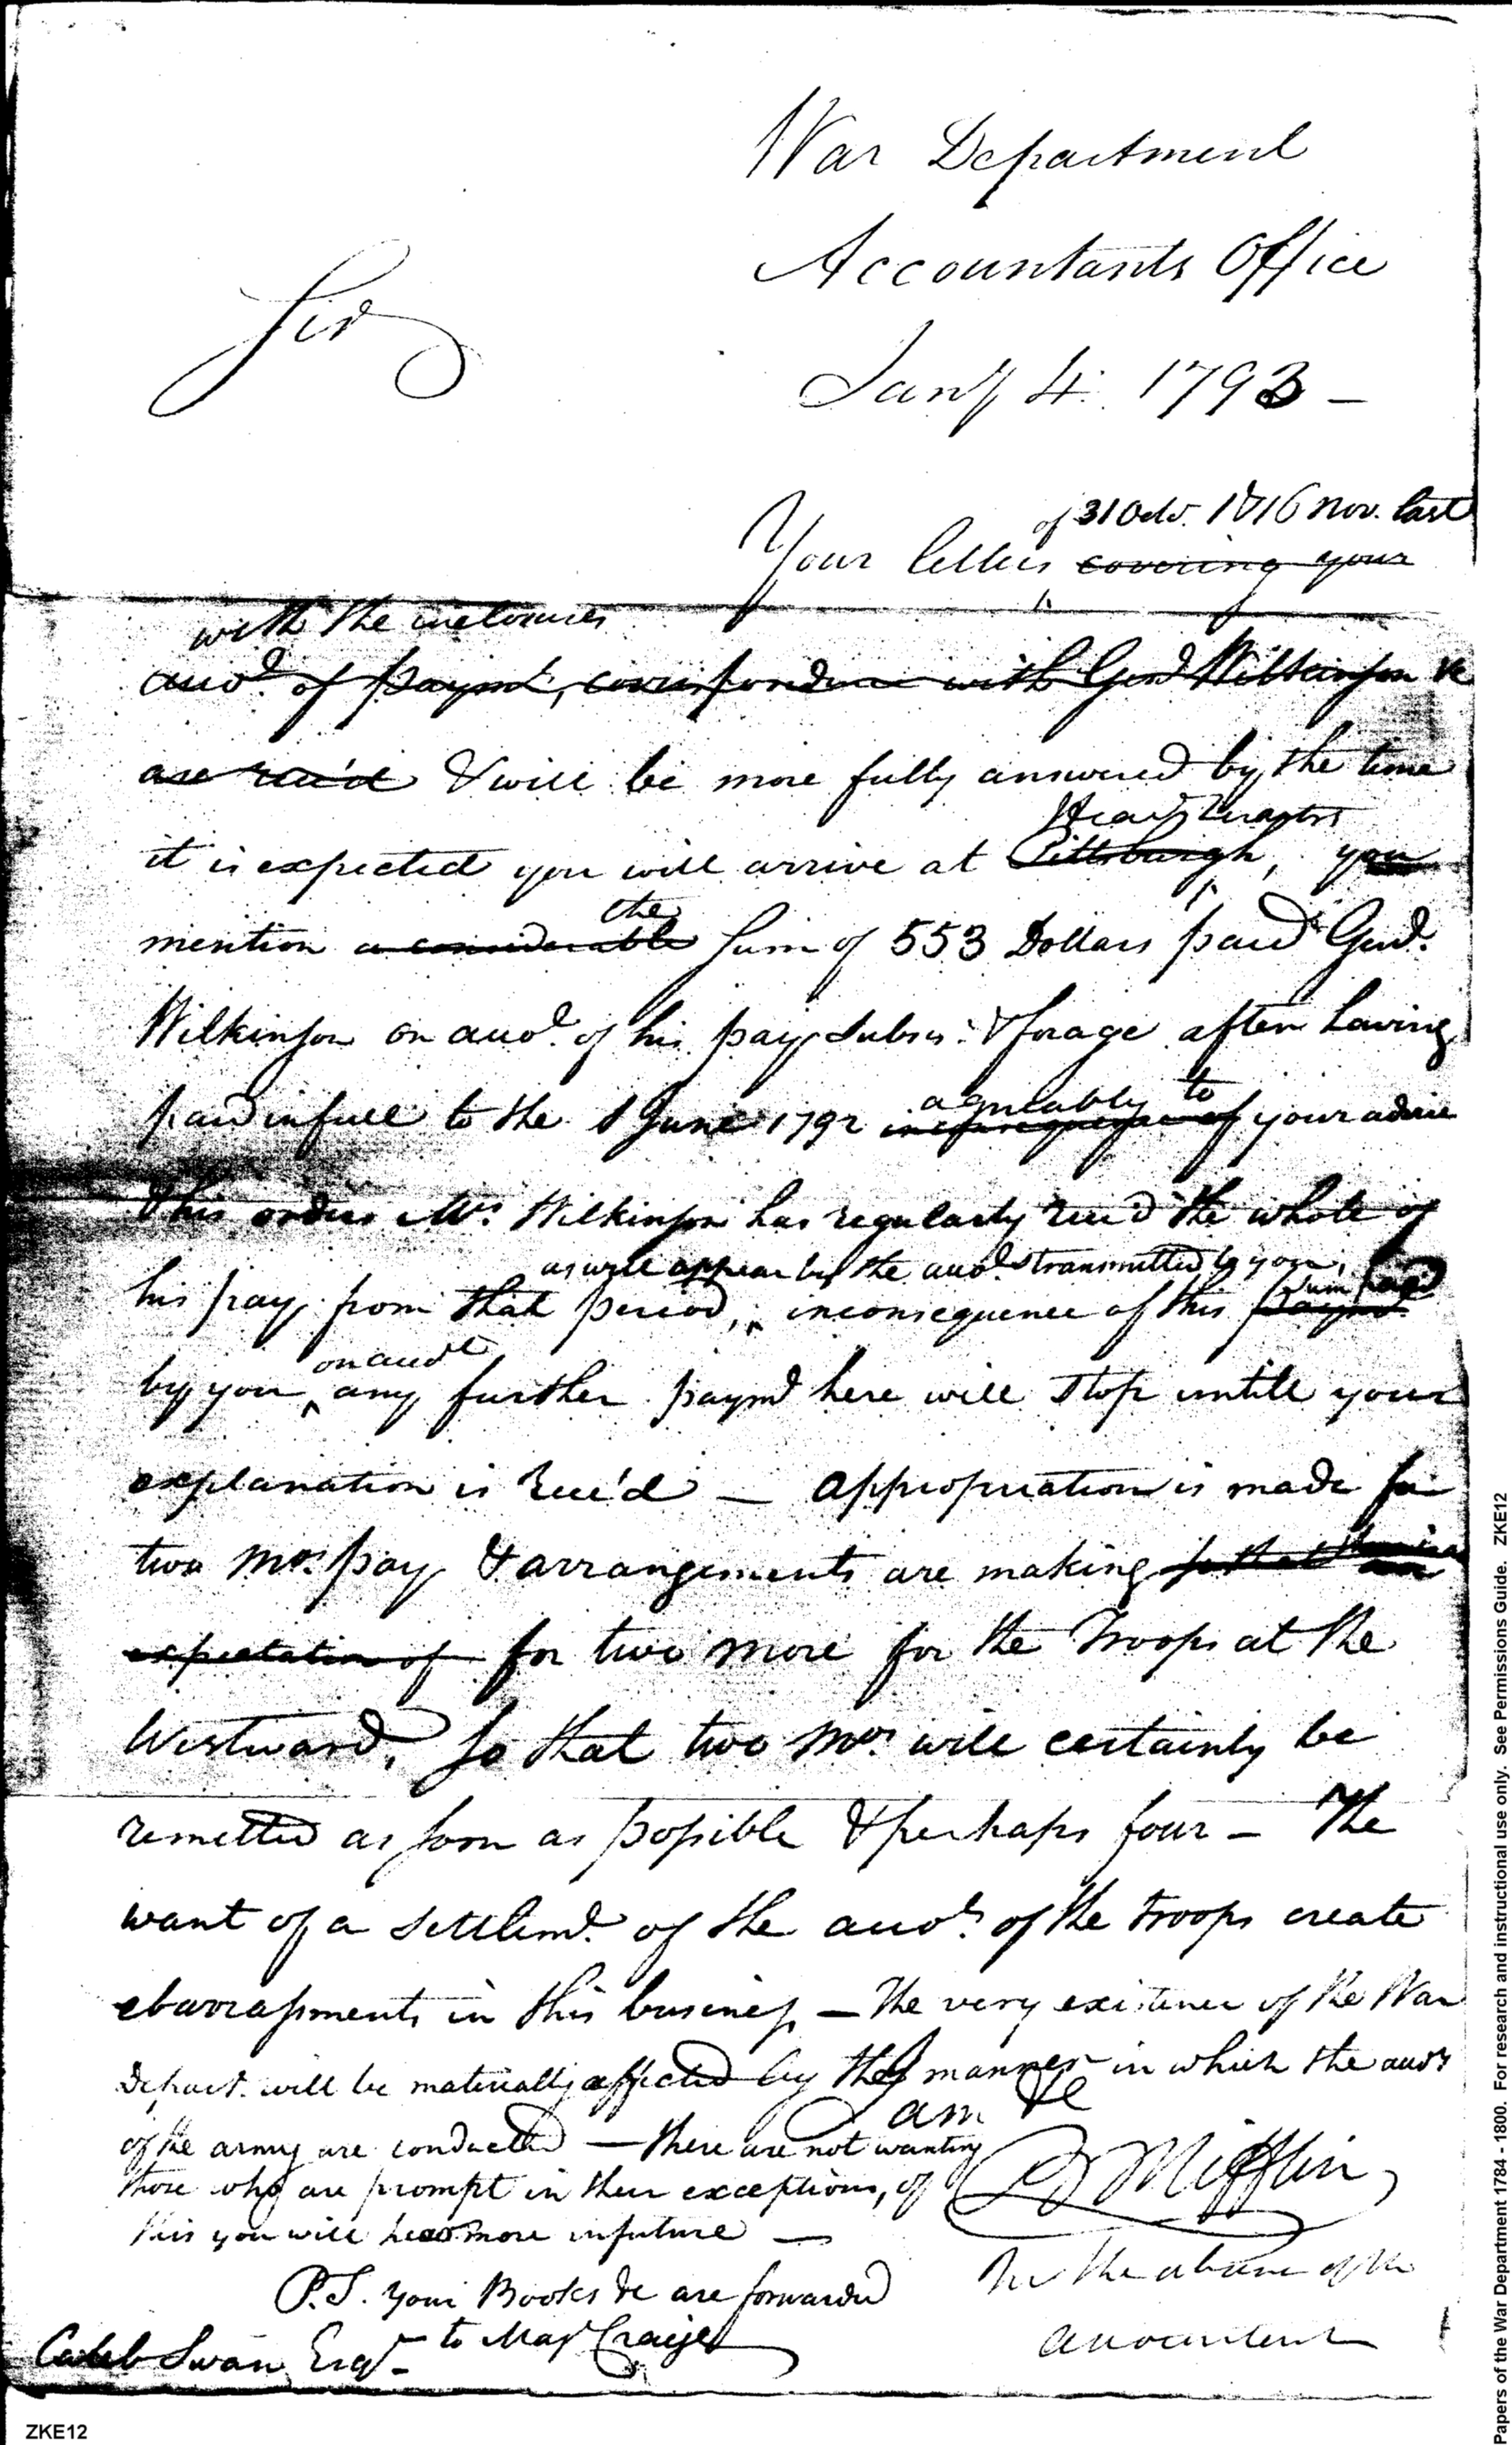 War Department
Accountants Office
Sir
Jany 4. 1793 –
of 31 Octr. & 16 Nov. last
Your letters covering your
with the inclosures
accot. of paymt., correspondence with Genl Wilkinson &c
are rec'd & will be more fully answered by the time
Head Quarters
it is expected you will arrive at Pittsburgh, you
the
mention a considerable Sum of 553 Dollars paid Genl.
Wilkinson on accot. of his pay Subsis. & forage after having
agreeably to
paid in full to the 1 June 1792 in consequence of your advice
& his orders Mrs. Wilkinson has regularly recd the whole of
as will appear by the accot. transmitted to you,
Sum paid
his pay from that period, inconsequence of this paymt.
on accot
by you any further paymt here will stop untill your
explanation is rec'd – appropriation is made for
two mos. pay & arrangements are making so that
expectation of for two more for the Troops at the
Westward, So that two mos. will certainly be
remitted as soon as possible & perhaps four – The
want of a settlemt. of the accots. of the troops create
ebarrassments in this business – the very existence of the War
Depart. will be materially affected by the manner in which the accots
of the army are conducted – there are not wanting
those who are prompt in their exceptions, of
this you will hear more infuture –
I am &c
D Mifflin,
In the absence of the
accountant
P.S. Your Books &c are forwarded
to Majr Craige
Caleb Swan Esqr –
ZKE12
Papers of the War Department 1784 - 1800. For research and instructional use only. See Permissions Guide. ZKE12